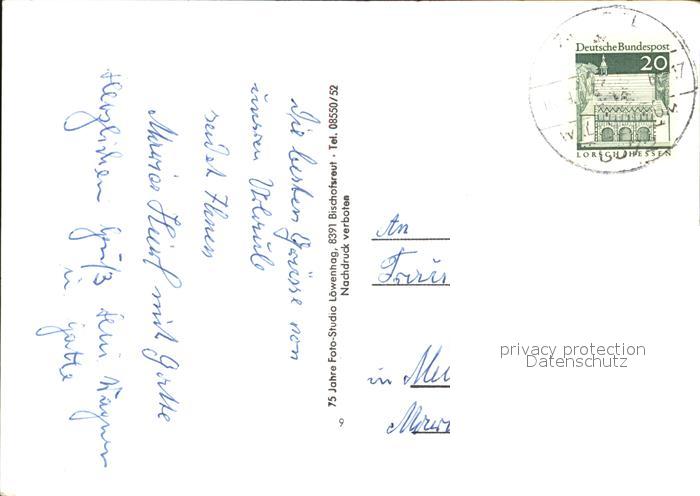 Die besten Grüsse von
unseren Urlaub
sendet Ihnen
Maria Heinl mit Gatte
Herzlichen Gruß Leni Wagner
u. Gatte
75 Jahre Foto-Studio Löwenhag, 8391 Bischofsreut · Tel. 08550/52
Nachdruck verboten
9
Deutsche Bundespost
20
LORSCH/HESSEN
An
in
privacy protection
Datenschutz